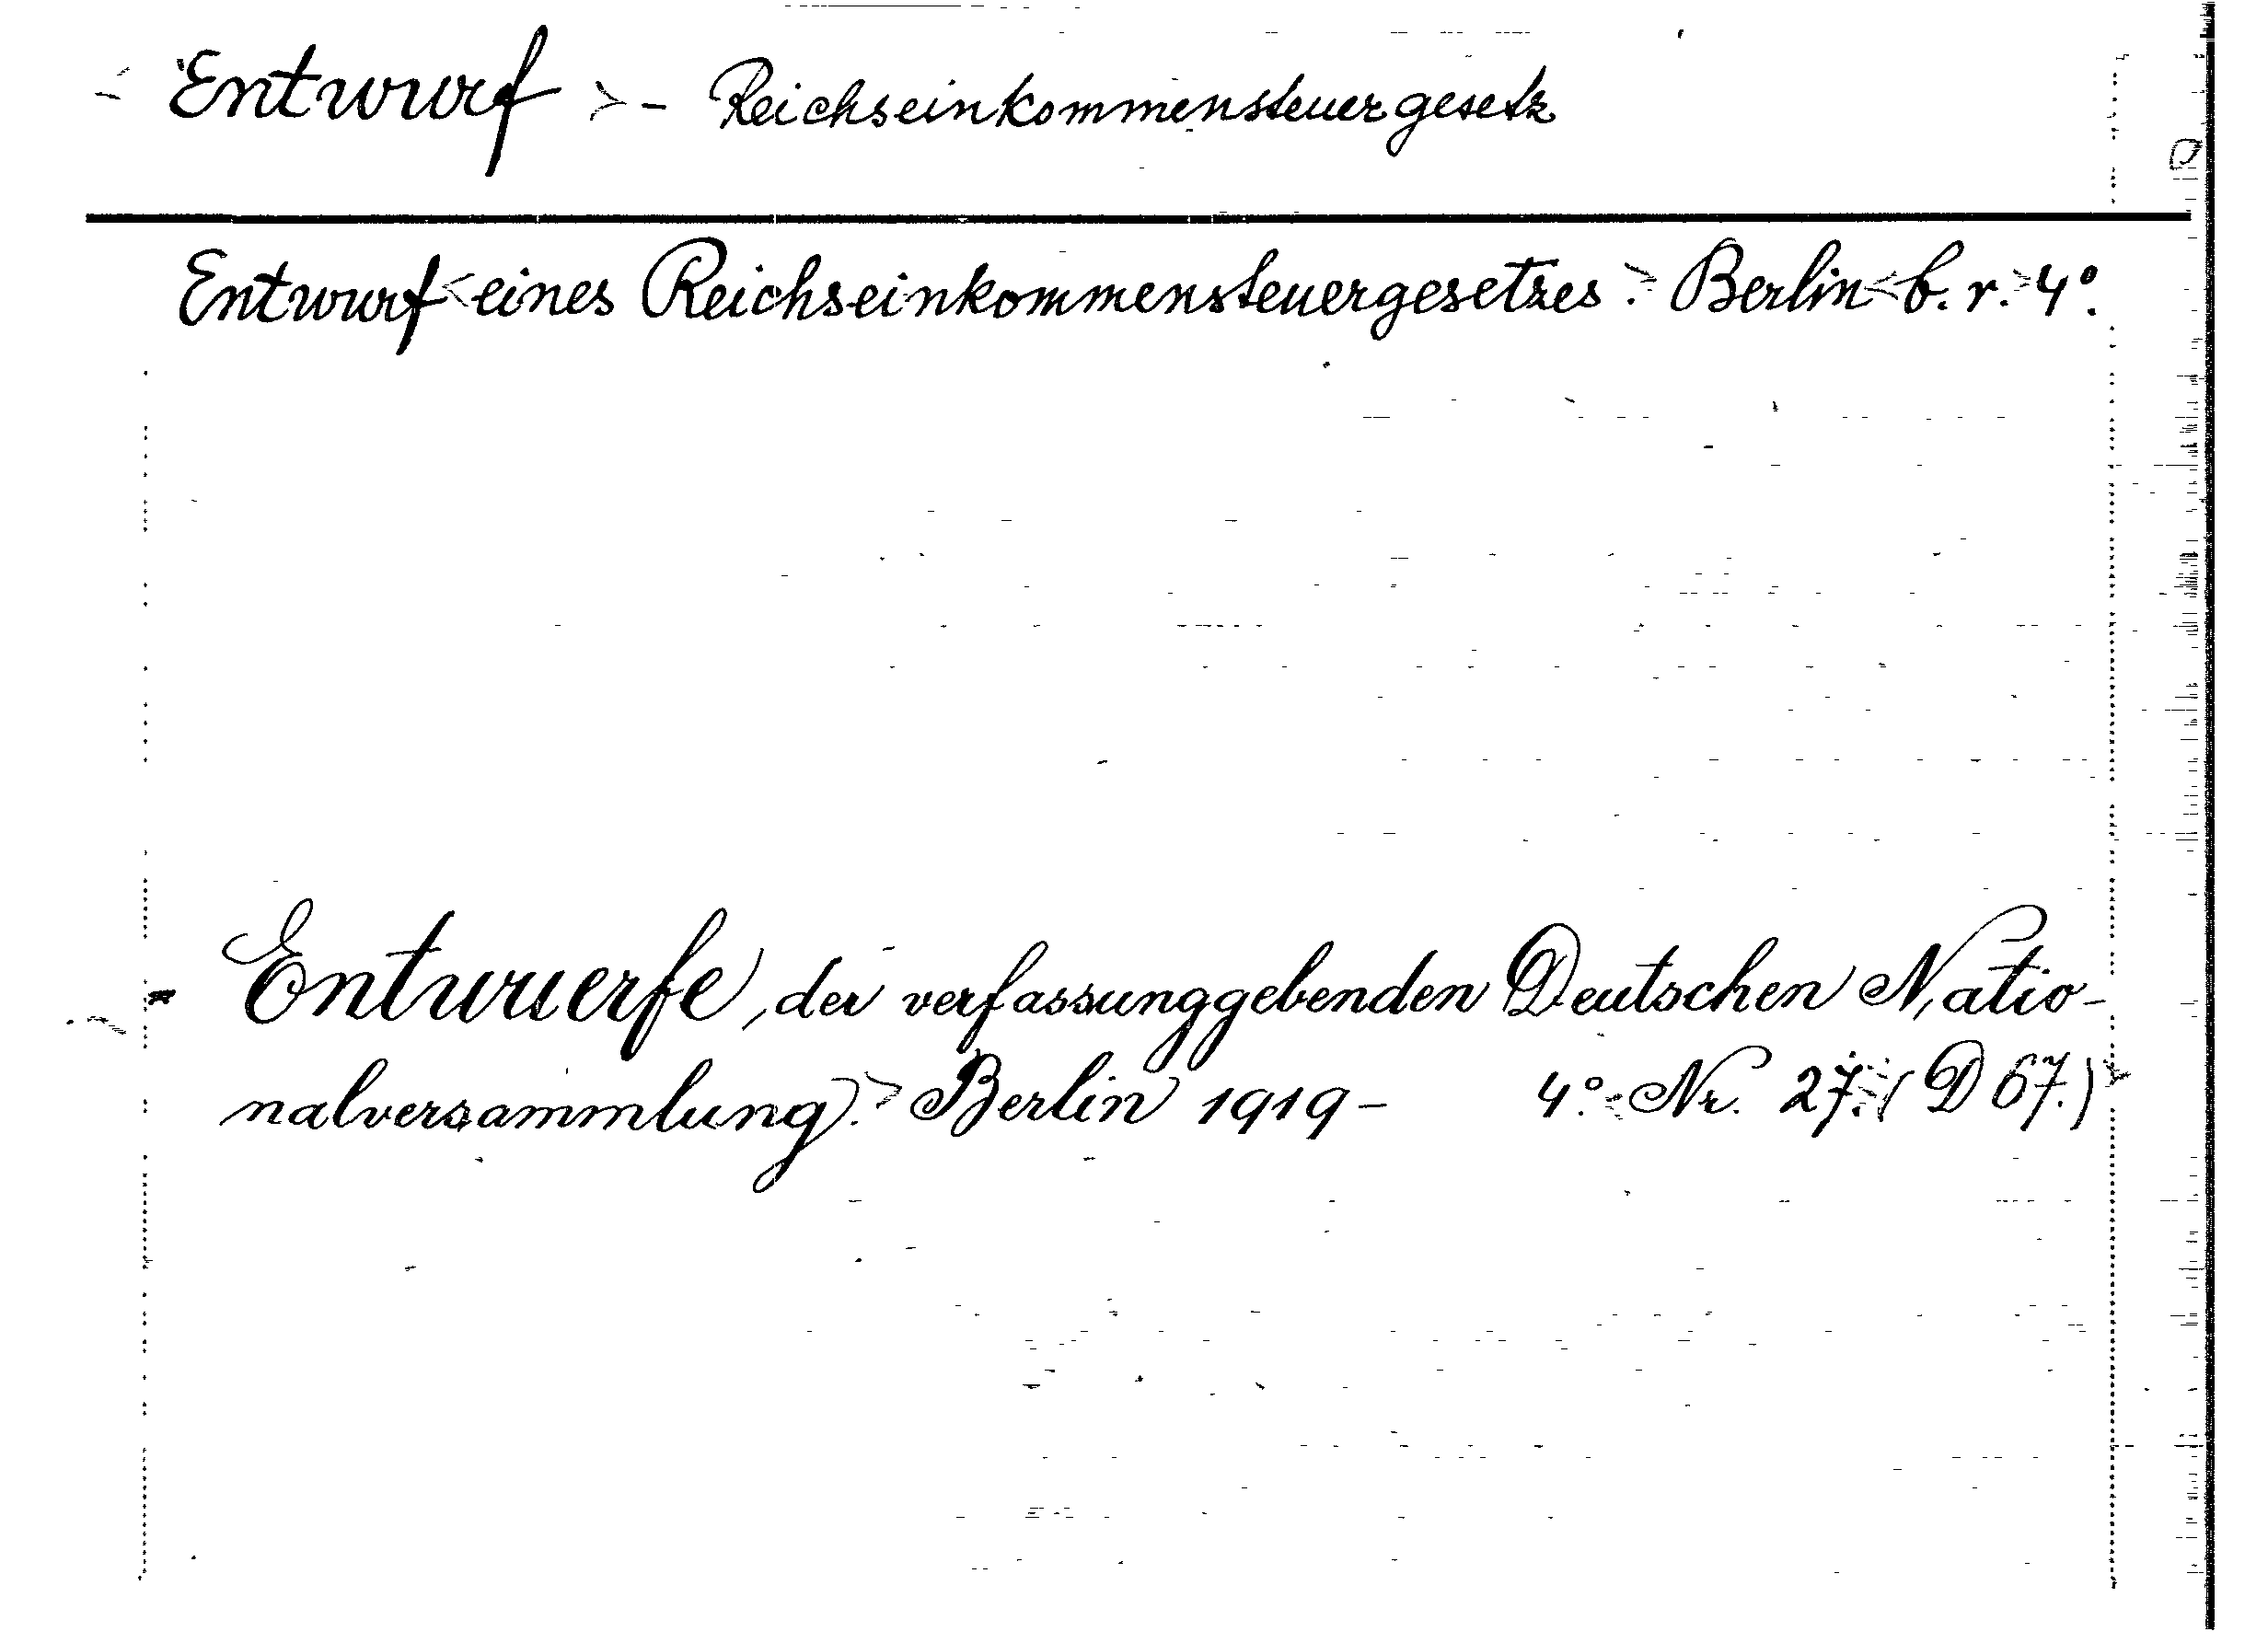 Entwurf - Reichseinkommensteuergesetz
Entwurf eines Reichseinkommensteuergesetzes. Berlin b. r. 4°.
Entwuerfe, der verfassunggebenden Deutschen Natio-
nalversammlung. Berlin 1919 - 4°. Nr. 27. (D 67.)